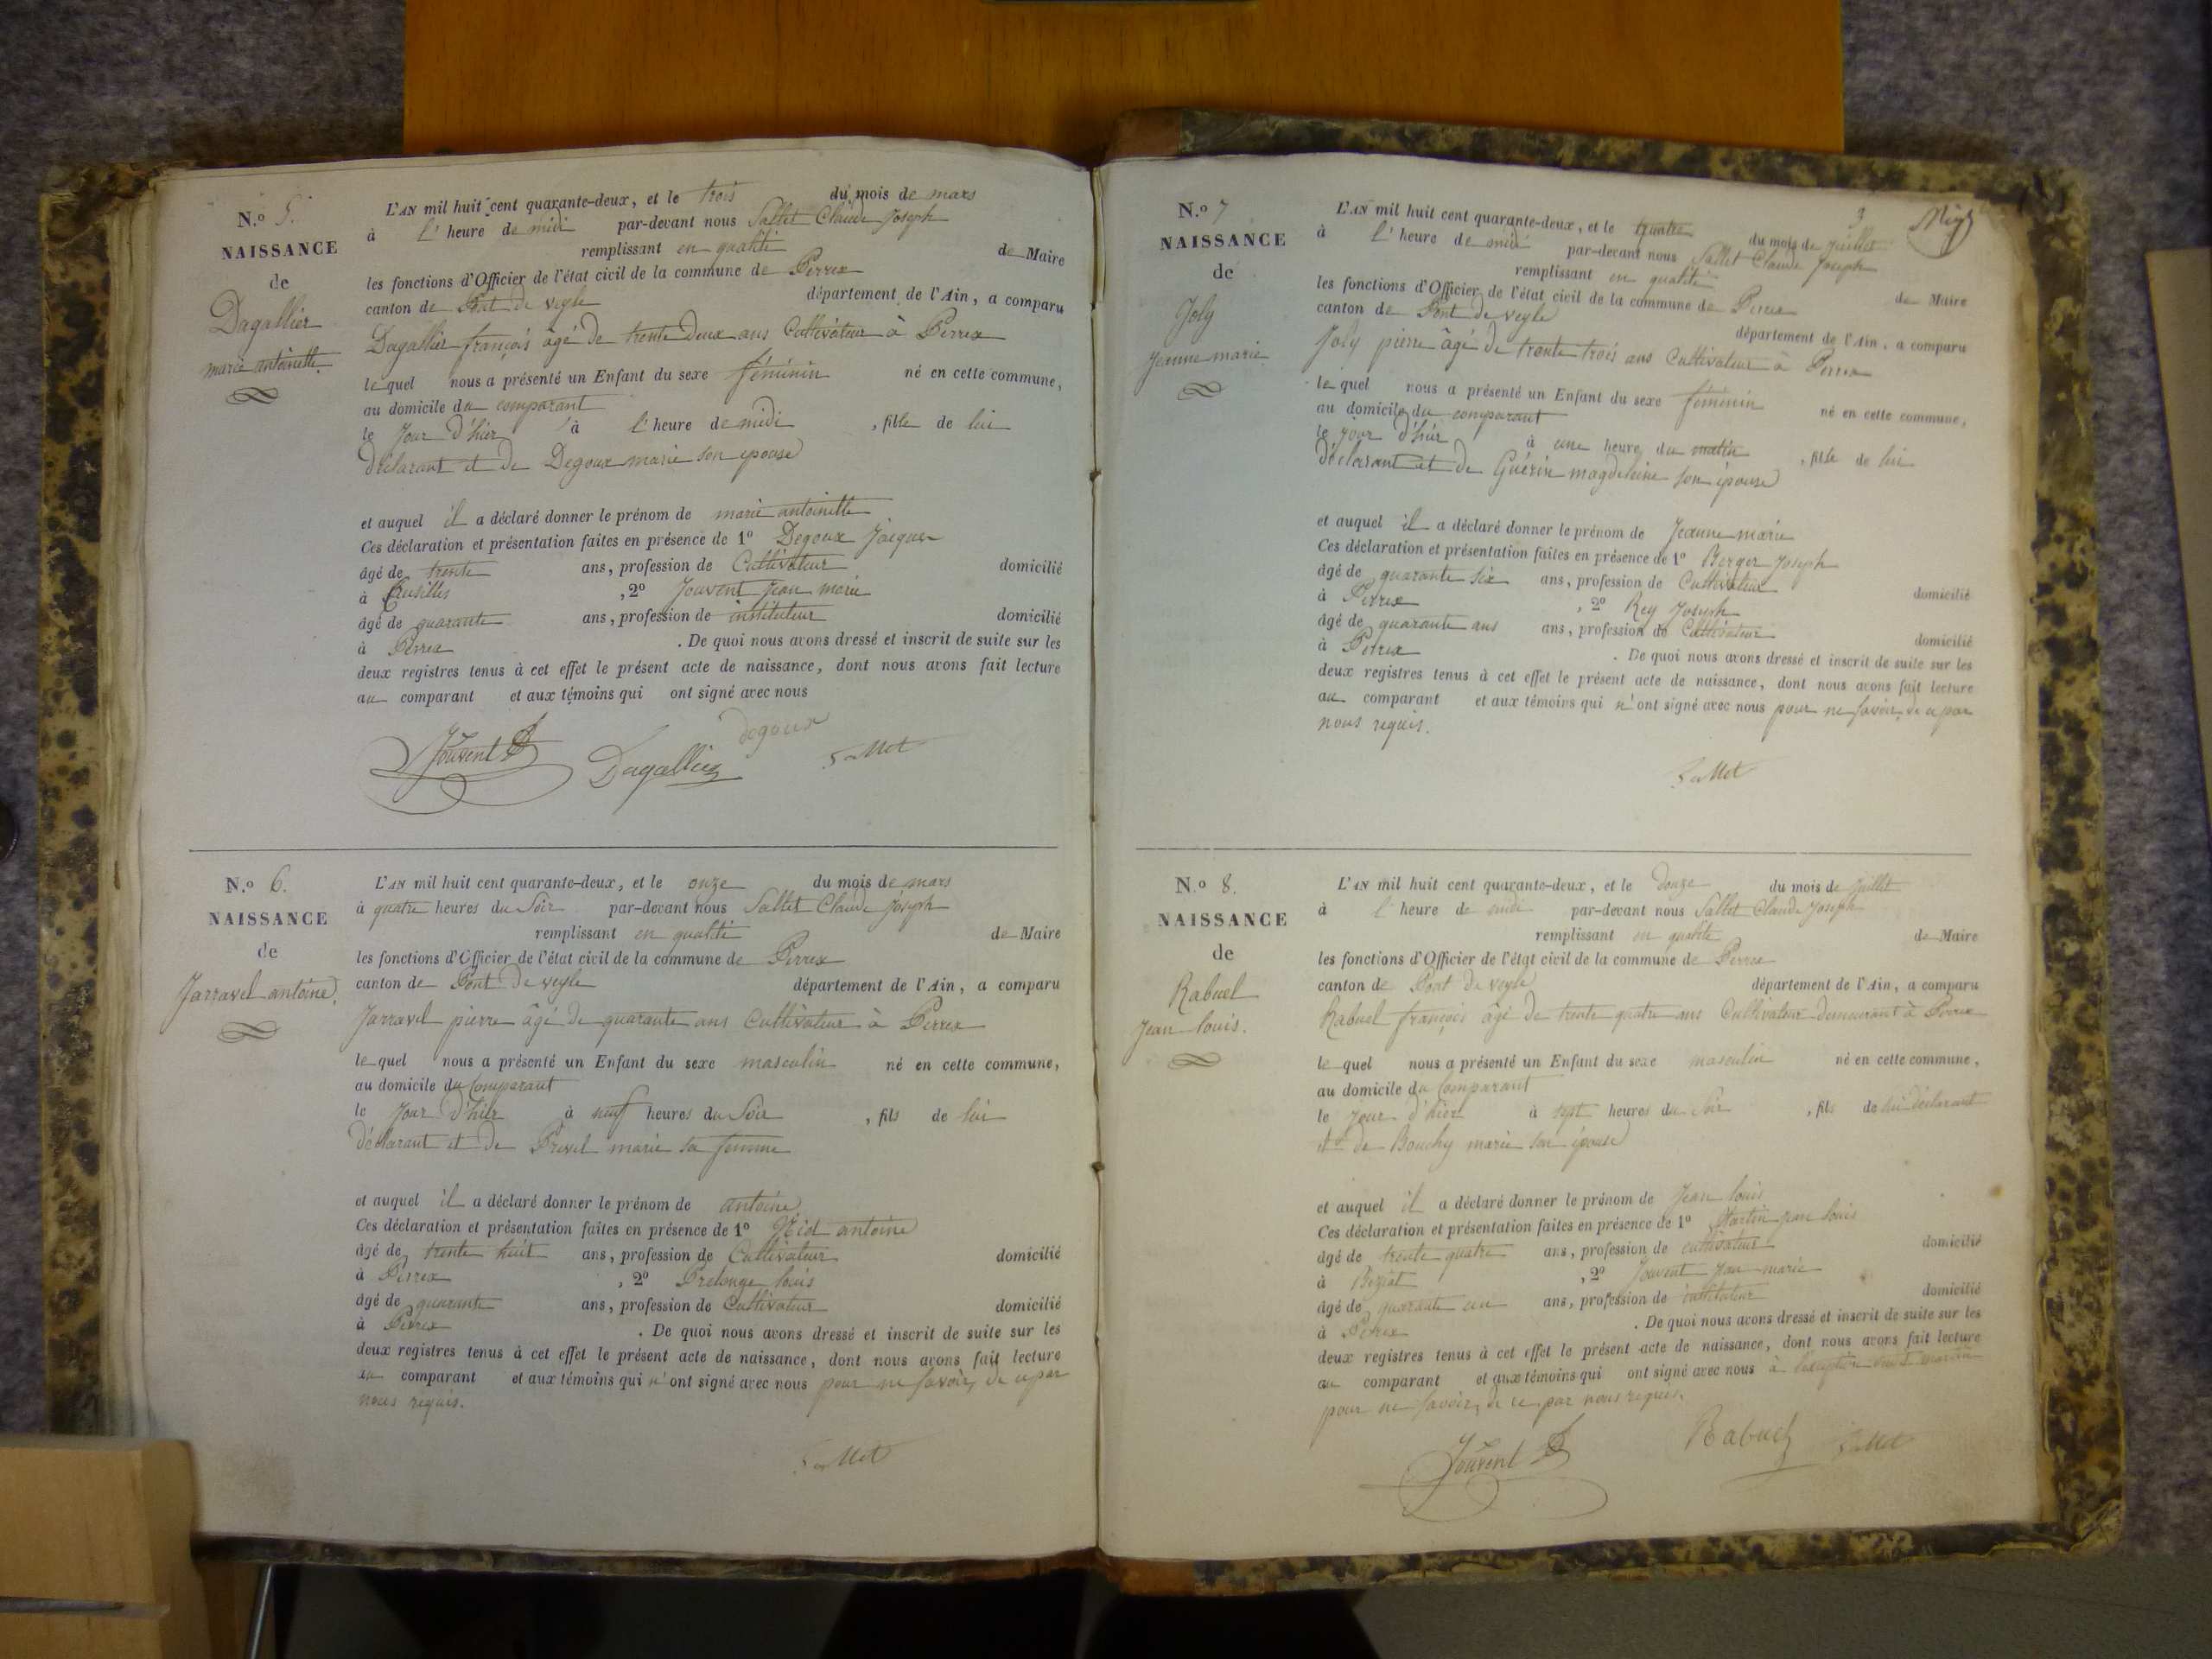 N.o 5.
NAISSANCE
de
Dagallier
marie antoinette
L'AN mil huit cent quarante-deux, et le trois du mois de mars
à l'heure de midi par-devant nous Sallet Claude Joseph
remplissant en qualité de Maire
les fonctions d'Officier de l'état civil de la commune de Perrex
canton de Pont de veyle département de l'Ain, a comparu
Dagallier françois âgé de trente deux ans Cultivateur à Perrex
lequel nous a présenté un Enfant du sexe féminin né en cette commune,
au domicile du comparant
le jour d'hier à l'heure de midi , fille de lui
déclarant et de Degoux marie son épouse
et auquel il a déclaré donner le prénom de marie antoinette
Ces déclaration et présentation faites en présence de 1o Degoux Jacques
âgé de trente ans, profession de Cultivateur domicilié
à Crusilles , 2o Jouvent jean marie
âgé de quarante ans, profession de instituteur domicilié
à Perrex . De quoi nous avons dressé et inscrit de suite sur les
deux registres tenus à cet effet le présent acte de naissance, dont nous avons fait lecture
au comparant et aux témoins qui ont signé avec nous
Jouvent Dagallier degoux Sallet
N.o 6.
NAISSANCE
de
Jarravel antoine
L'AN mil huit cent quarante-deux, et le onze du mois de mars
à quatre heures du Soir par-devant nous Sallet Claude Joseph
remplissant en qualité de Maire
les fonctions d'Officier de l'état civil de la commune de Perrex
canton de Pont de veyle département de l'Ain, a comparu
Jarravel pierre âgé de quarante ans Cultivateur à Perrex
lequel nous a présenté un Enfant du sexe masculin né en cette commune,
au domicile du Comparant
le jour d'hier à neuf heures du Soir , fils de lui
déclarant et de Prevel marie sa femme
et auquel il a déclaré donner le prénom de antoine
Ces déclaration et présentation faites en présence de 1o antoine
âgé de trente huit ans, profession de Cultivateur domicilié
à Perrex , 2o Prelonge louis
âgé de quarante ans, profession de Cultivateur domicilié
à Perrex . De quoi nous avons dressé et inscrit de suite sur les
deux registres tenus à cet effet le présent acte de naissance, dont nous avons fait lecture
au comparant et aux témoins qui n'ont signé avec nous pour ne savoir, de ce par
nous requis.
Sallet
3
N.o 7
NAISSANCE
de
Joly
Jeanne marie
L'AN mil huit cent quarante-deux, et le trente du mois de juillet
à l'heure de midi par-devant nous Sallet Claude Joseph
remplissant en qualité de Maire
les fonctions d'Officier de l'état civil de la commune de Perrex
canton de Pont de veyle département de l'Ain, a comparu
Joly pierre âgé de trente trois ans Cultivateur à Perrex
lequel nous a présenté un Enfant du sexe féminin né en cette commune,
au domicile du comparant
le jour d'hier à une heure du matin , fille de lui
déclarant et de Guérin magdeleine son épouse
et auquel il a déclaré donner le prénom de Jeanne marie
Ces déclaration et présentation faites en présence de 1o Berger Joseph
âgé de quarante six ans, profession de Cultivateur domicilié
à Perrex , 2o Rey Joseph
âgé de quarante ans ans, profession de Cultivateur domicilié
à Perrex . De quoi nous avons dressé et inscrit de suite sur les
deux registres tenus à cet effet le présent acte de naissance, dont nous avons fait lecture
au comparant et aux témoins qui n'ont signé avec nous pour ne savoir, de ce par
nous requis.
Sallet
N.o 8.
NAISSANCE
de
Rabuel
Jean louis.
L'AN mil huit cent quarante-deux, et le douze du mois de juillet
à l'heure de midi par-devant nous Sallet Claude Joseph
remplissant en qualité de Maire
les fonctions d'Officier de l'état civil de la commune de Perrex
canton de Pont de veyle département de l'Ain, a comparu
Rabuel françois âgé de trente quatre ans Cultivateur demeurant à Perrex
lequel nous a présenté un Enfant du sexe masculin né en cette commune,
au domicile du Comparant
le jour d'hier à sept heures du Soir , fils de lui déclarant
et de Bouchy marie son épouse
et auquel il a déclaré donner le prénom de Jean louis
Ces déclaration et présentation faites en présence de 1o Martin jean louis
âgé de trente quatre ans, profession de cultivateur domicilié
à Biziat , 2o Jouvent jean marie
âgé de quarante un ans, profession de instituteur domicilié
à Perrex . De quoi nous avons dressé et inscrit de suite sur les
deux registres tenus à cet effet le présent acte de naissance, dont nous avons fait lecture
au comparant et aux témoins qui ont signé avec nous à l'exception martin
pour ne savoir, de ce par nous requis.
Jouvent Rabuel Sallet